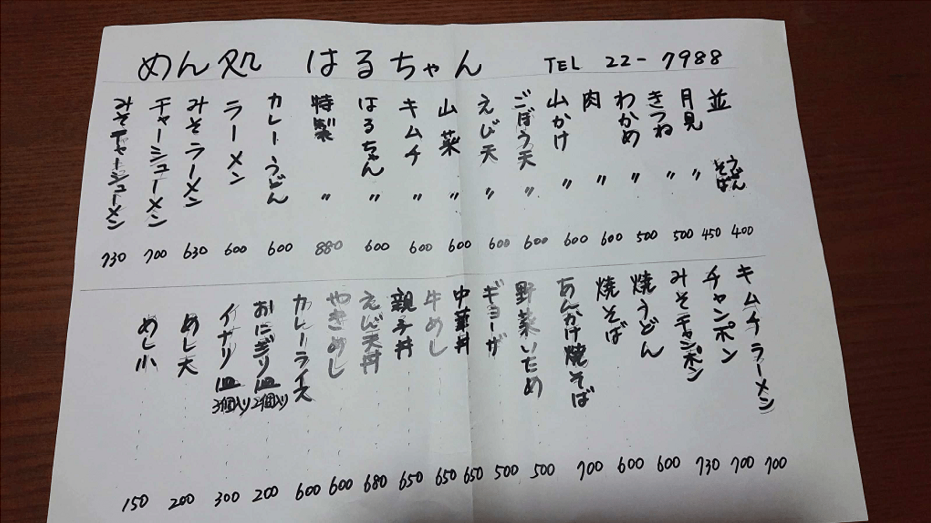 めん処 はるちゃん TEL 22-7988
並 うどん そば 400
月見 〃 450
きつね 〃 500
わかめ 〃 500
肉 〃 600
山かけ 〃 600
ごぼう天 〃 600
えび天 〃 600
山菜 〃 600
キムチ 〃 600
はるちゃん 〃 600
特製 〃 880
カレーうどん 600
ラーメン 600
みそラーメン 630
チャーシューメン 700
みそチャーシューメン 730
キムチラーメン 700
チャンポン 700
みそチャンポン 730
焼うどん 600
焼そば 600
あんかけ焼そば 700
野菜いため 500
ギョーザ 500
中華丼 650
牛めし 650
親子丼 650
えび天丼 680
やきめし 600
カレーライス 600
おにぎり皿 2個入り 200
イナリ皿 3個入り 300
めし大 200
めし小 150